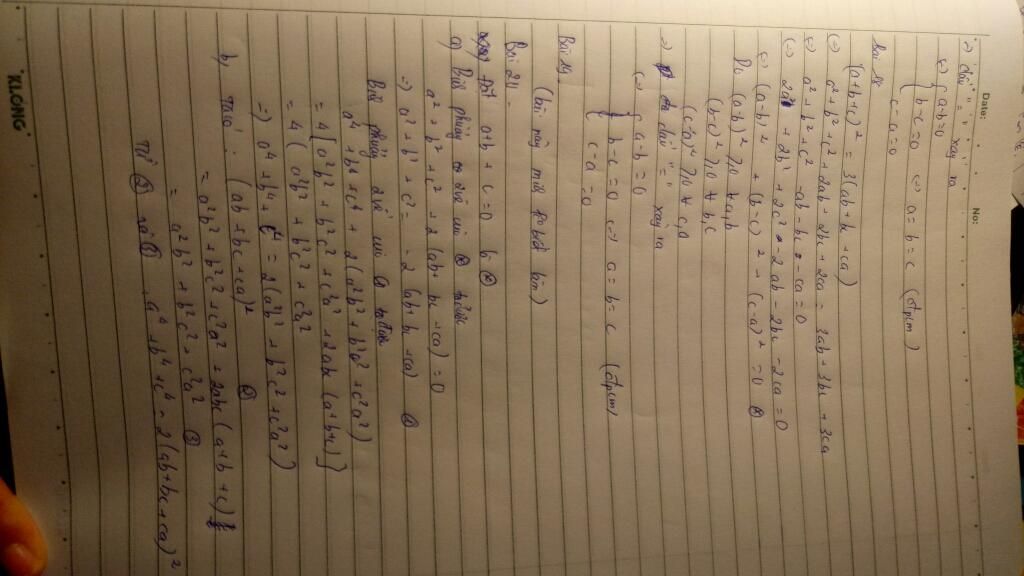 Date: No:
=> dấu "=" xảy ra
<=> { a-b=0
b-c=0 <=> a=b=c (đpcm)
c-a=0
Bài 18
(a+b+c)² = 3(ab+bc+ca)
<=> a²+b²+c²+2ab+2bc+2ca = 3ab+3bc+3ca
<=> a²+b²+c² -ab-bc-ca=0
<=> 2a²+2b²+2c²-2ab-2bc-2ca=0
<=> (a-b)²+(b-c)²+(c-a)²=0
Do (a-b)² ≥0 ∀ a,b
(b-c)² ≥0 ∀ b,c
(c-a)² ≥0 ∀ c,a
=> dấu "=" xảy ra
<=> { a-b=0
b-c=0 <=> a=b=c (đpcm)
c-a=0
Bài 19
(bài này mik bt làm)
Bài 21:
a+b+c=0
a) Bình phương 2 vế được
a²+b²+c²+2(ab+bc+ca)=0
=> a²+b²+c²=-2(ab+bc+ca)
Bình phương 2 vế được
a⁴+b⁴+c⁴+2(a²b²+b²c²+c²a²)
=4[a²b²+b²c²+c²a²+2abc(a+b+c)]
=4(a²b²+b²c²+c²a²)
=> a⁴+b⁴+c⁴=2(a²b²+b²c²+c²a²) ②
b, Ta có: (ab+bc+ca)²
=a²b²+b²c²+c²a²+2abc(a+b+c)
=a²b²+b²c²+c²a² ③
Từ ② và a⁴+b⁴+c⁴=2(ab+bc+ca)²
KLONG